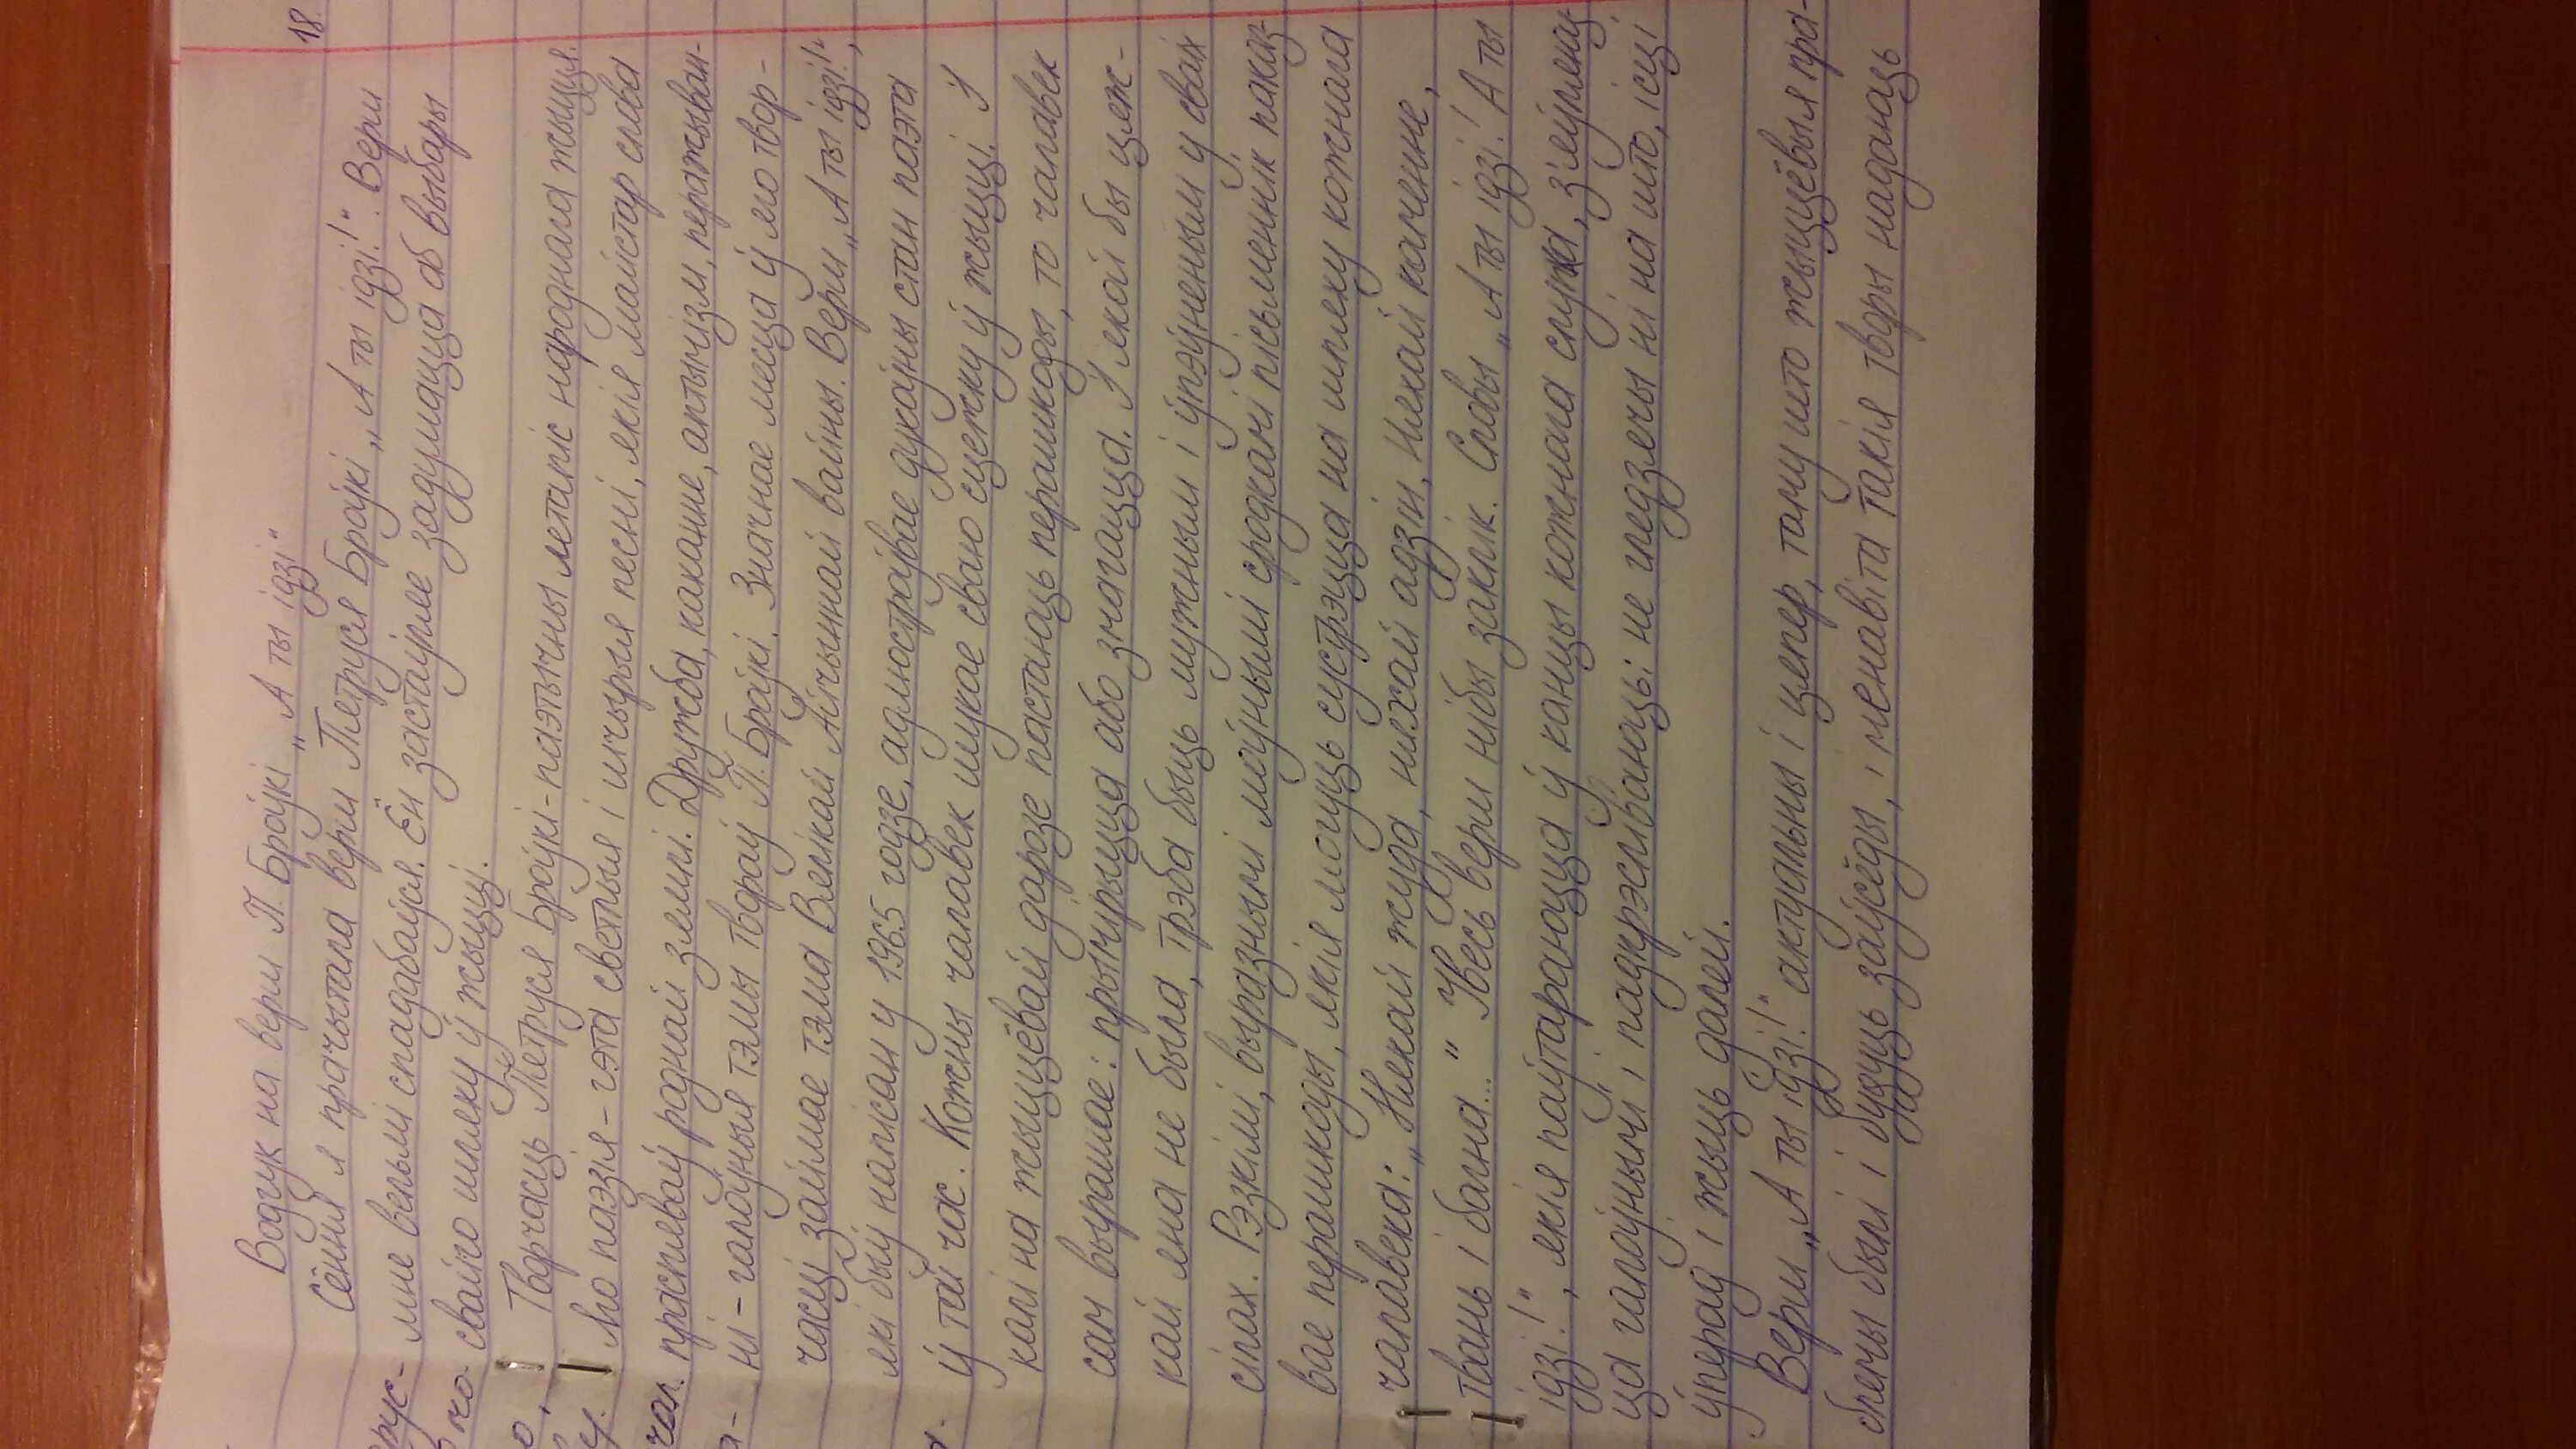 18.
Водгук на верш П. Броўкі „А ты ідзі"
Сёння я прачытала верш Петруся Броўкі „А ты ідзі!". Верш
мне вельмі спадабаўся. Ён застаўляе задумацца аб выбары
свайго шляху ў жыцці.
Творчасць Петруся Броўкі - паэтычны летапіс народнага жыцця.
Яго паэзія - гэта светлыя і шчырыя песні, якія майстар слова
праспяваў роднай зямлі. Дружба, каханне, аптымізм, перажыван-
ні - галоўныя тэмы твораў П. Броўкі. Значнае месца ў яго твор-
часці займае тэма Вялікай Айчыннай вайны. Верш „А ты ідзі!",
які быў напісан у 1965 годзе, адлюстроўвае духоўны стан паэта
ў той час. Кожны чалавек шукае сваю сцежку ў жыцці. І
калі на жыццёвай дарозе пастаюць перашкоды, то чалавек
сам вырашае: прымірыцца або змагацца. І якой бы цяж-
кай яна не была, трэба быць мужным і ўпэўненым у сваіх
сілах. Рэзкімі, выразнымі моўнымі сродкамі пісьменнік паказ-
вае перашкоды, якія могуць сустрэцца на шляху кожнага
чалавека: „Няхай жуда, няхай адзін, Няхай каменне,
твань і багна..." Увесь верш нібы заклік. Словы „А ты ідзі! А ты
ідзі!", якія паўтараюцца ў канцы кожнага слупка, з'яўляюц-
ца галоўнымі і падкрэсліваюць: не гледзячы ні на што, ісці
ўперад і жыць далей.
Верш „А ты ідзі!" актуальны і цяпер, таму што жыццёвыя пра-
блемы былі і будуць заўсёды, і менавіта такія творы надаюць